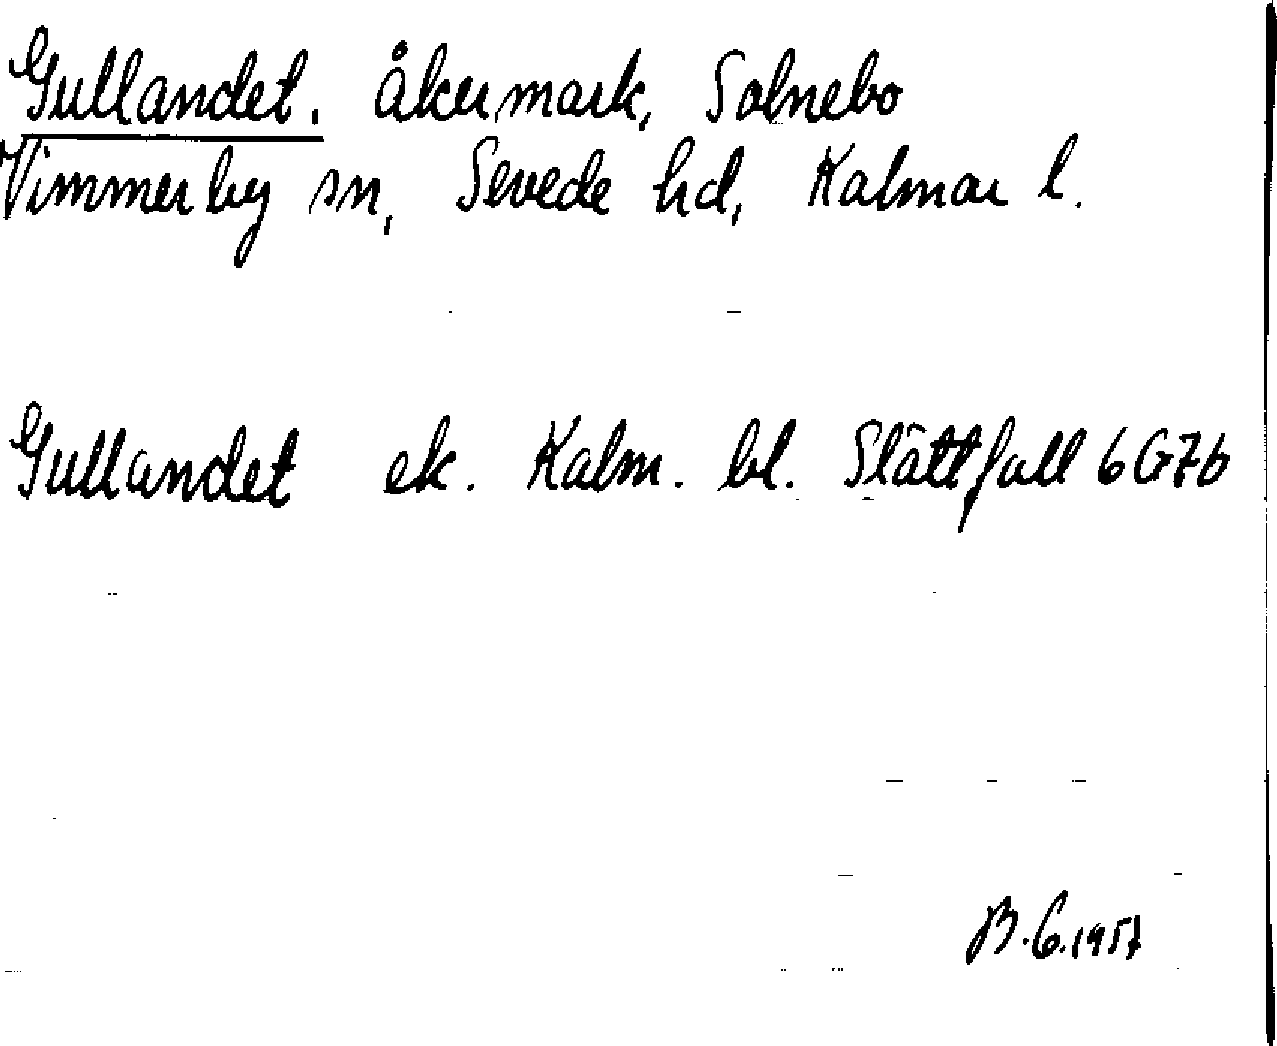 Gullandet. åkermark, Solnebo
Vimmerby sn, Sevede hd, Kalmar l.
Gullandet ek. Kalm. bl. Slättfall 6G7b
B.G.1957